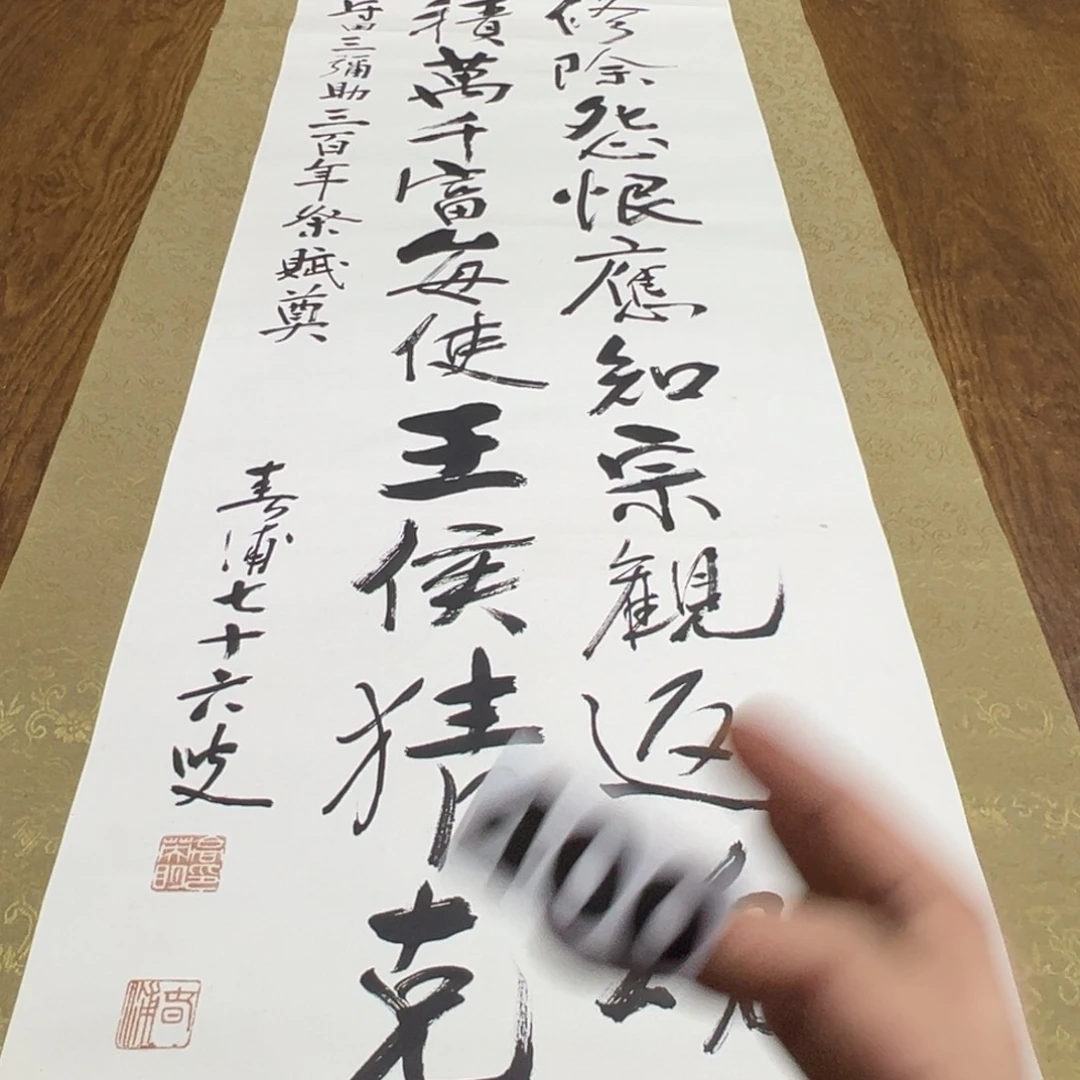 修除怨恨應知宗観返魂
積萬千富每使王侯猜克
三彌助三百年祭賦奠
春浦七十六叟